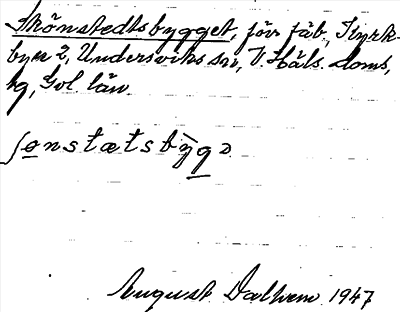 Skönstedtsbygget, förr fäb., Kyrk-
byn 2, Undersviks sn, V. Häls. doms,
hg, Gvl. län
ʃo̲nstætsby̆g̲ə
August Dalhem 1947